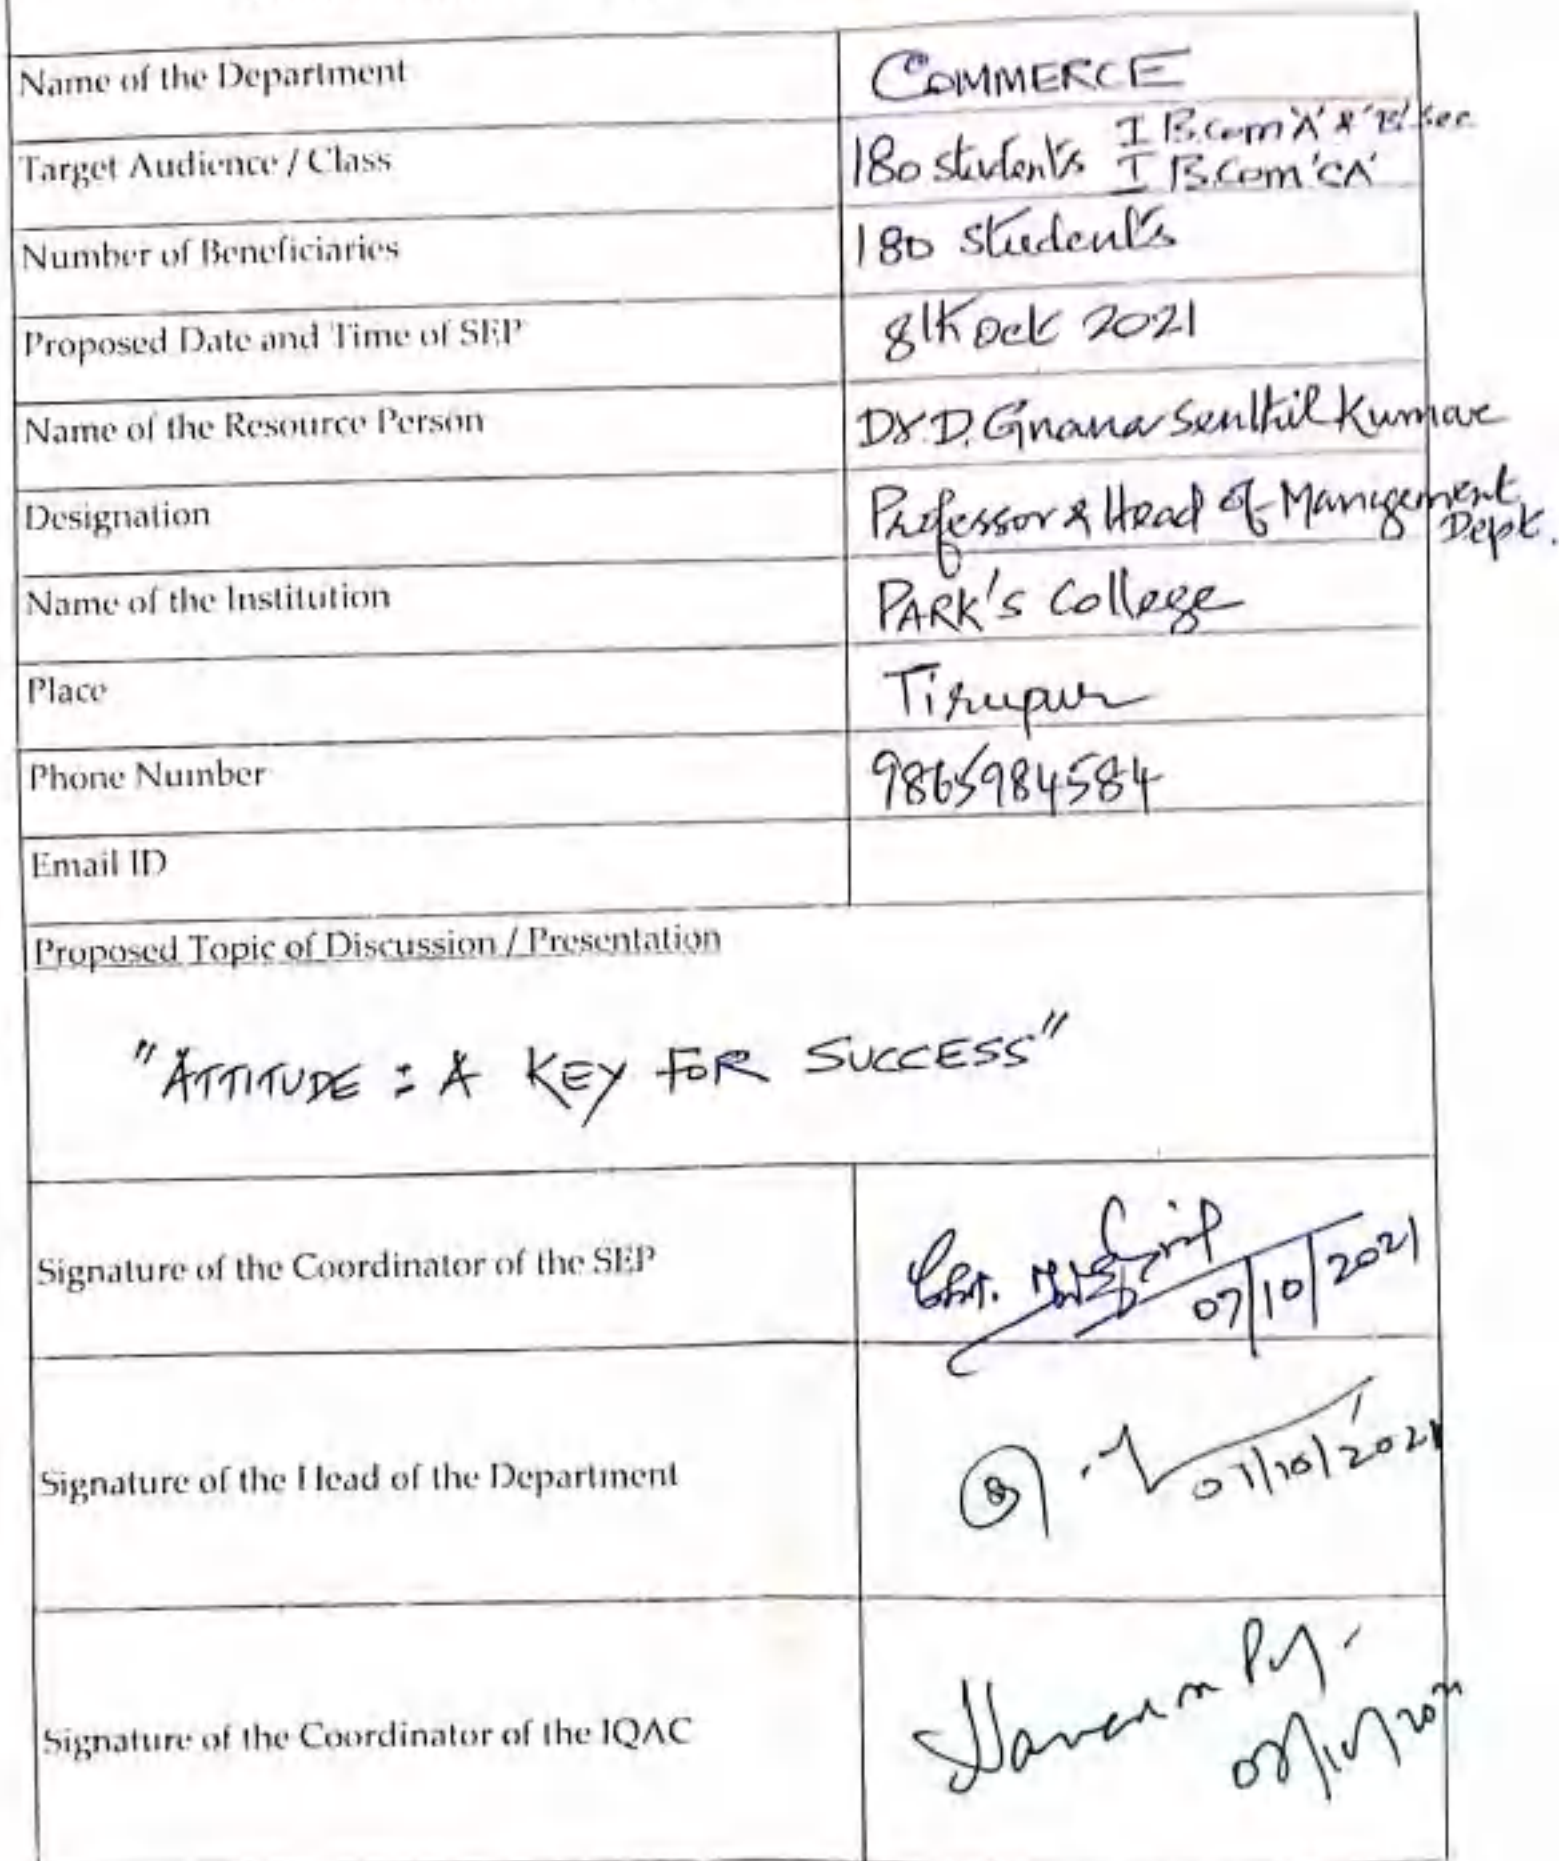 Name of the Department COMMERCE
Target Audience / Class 180 students I B.Com 'A' & 'B' Sec
I B.Com 'CA'
Number of Beneficiaries 180 students
Proposed Date and Time of SEP 8th Oct 2021
Name of the Resource Person Dr. D. Gnana Senthil Kumar
Designation Professor & Head of Management
Dept.
Name of the Institution PARK's College
Place Tirupur
Phone Number 9865984584
Email ID
Proposed Topic of Discussion / Presentation
"ATTITUDE : A KEY FOR SUCCESS"
Signature of the Coordinator of the SEP
07/10/2021
Signature of the Head of the Department
07/10/2021
Signature of the Coordinator of the IQAC